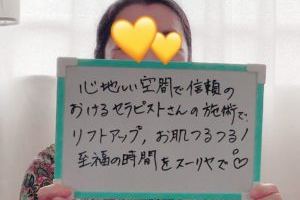 心地いい空間で信頼の
おけるセラピストさんの施術で、
リフトアップ、お肌つるつる!
至福の時間をスーリヤで♡